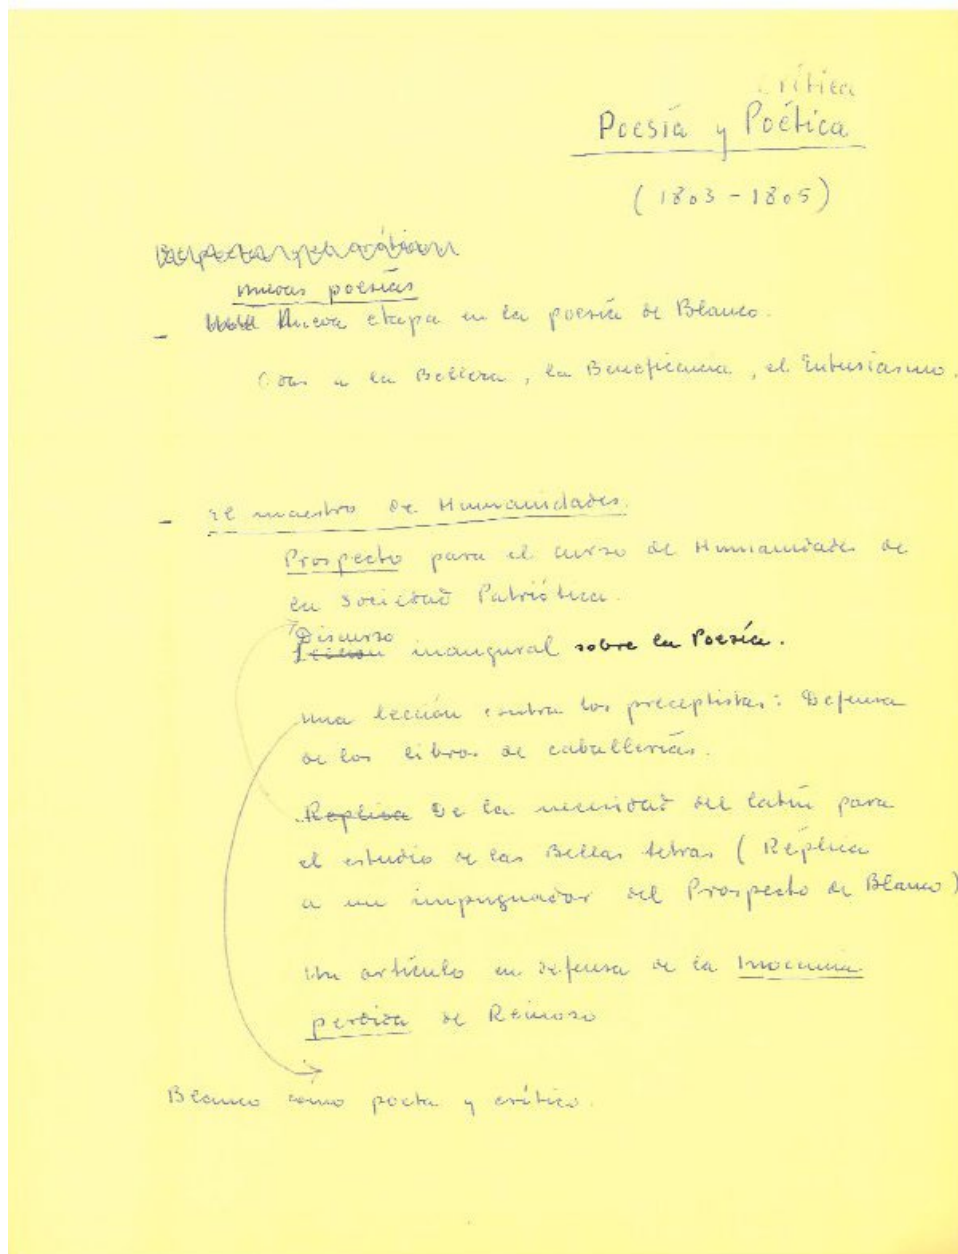 Crítica
Poesía y Poética
(1803 - 1805)
nuevas poesías
- Nueva etapa en la poesía de Blanco.
Odas a la Belleza, la Beneficencia, el Entusiasmo.
- El maestro de Humanidades.
Prospecto para el curso de Humanidades de
la Sociedad Patriótica.
Discurso
Lección inaugural sobre la Poesía.
Una lección contra los preceptistas: Defensa
de los libros de caballerías.
Replica De la necesidad del latín para
el estudio de las Bellas Letras (Réplica
a un impugnador del Prospecto de Blanco)
Un artículo en defensa de la Inocencia
perdida de Reinoso
Blanco como poeta y crítico.